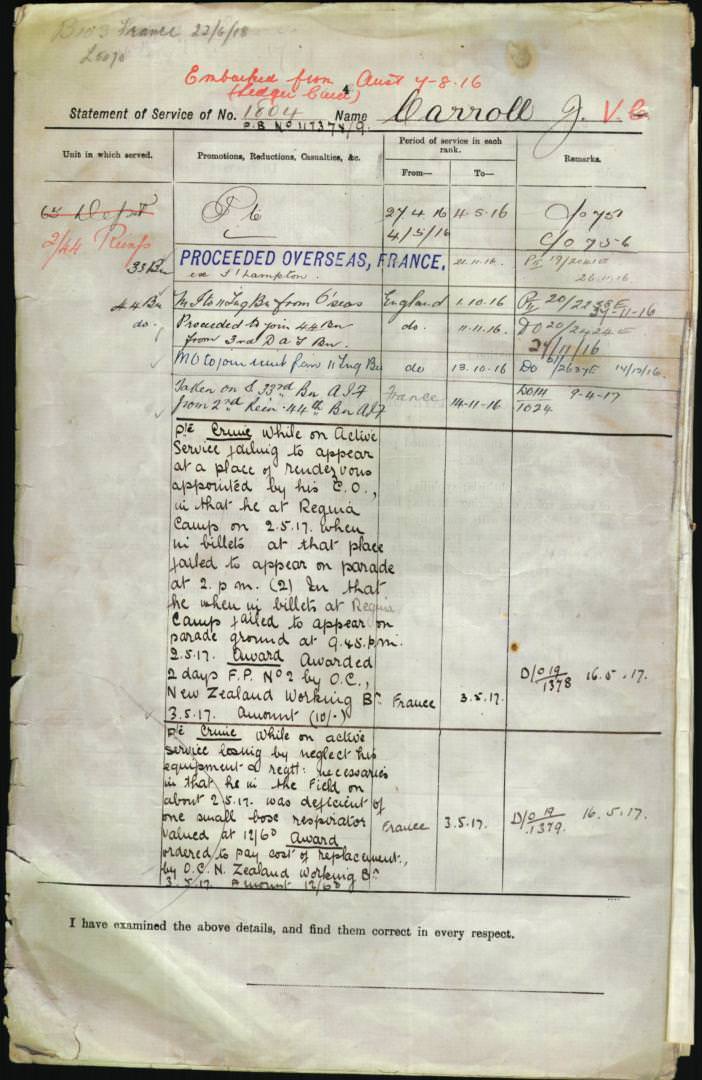 B103 France 22/6/18
Embarked from Aust 7-8-16
(Ledger Card)
Statement of Service of No. 1804 Name Carroll J. V.C.
Unit in which served.
Promotions, Reductions, Casualties, &c.
Period of service in each rank.
From—
To—
Remarks.
Depot Pte 27.4.16 4.5.16 C/o 751
2/44 Reinfs 4/5/16 C/o 756
33 Bn PROCEEDED OVERSEAS, FRANCE, 21.11.16
ex S'hampton. 26.11.16
44 Bn M I to 11 Tng Bn from O'seas England 1.10.16
do. Proceeded to join 44 Bn do. 11.11.16. DO 20/2424
from 3rd D & T Bn. 24/11/16
MO to join unit from 11 Tng Bn do 13.10.16 DO 14/12/16.
Taken on S 33rd Bn A.I.F France 14-11-16 9-4-17
from 2nd Rein. 44th Bn A.I.F 1024
Pte Crime While on Active
Service failing to appear
at a place of rendezvous
appointed by his C.O.,
in that he at Regina
Camp on 2.5.17. when
in billets at that place
failed to appear on parade
at 2. p m. (2) In that
he when in billets at Regina
Camp failed to appear on
parade ground at 9.45.p.m.
2.5.17. Award Awarded
2 days F.P. No 2 by O.C.,
New Zealand Working Bn France 3.5.17. D/o 19/1378 16.5.17.
3.5.17. Amount (10/-)
Pte Crime While on active
service losing by neglect his
equipment & regtl: necessaries
in that he in the Field on
about 2.5.17. was deficient of
one small box respirator France 3.5.17. D/o 19/1379. 16.5.17.
valued at 12/6d Award
ordered to pay cost of replacement.,
by O.C. N. Zealand Working Bn
3.5.17. Amount 12/6d
I have examined the above details, and find them correct in every respect.